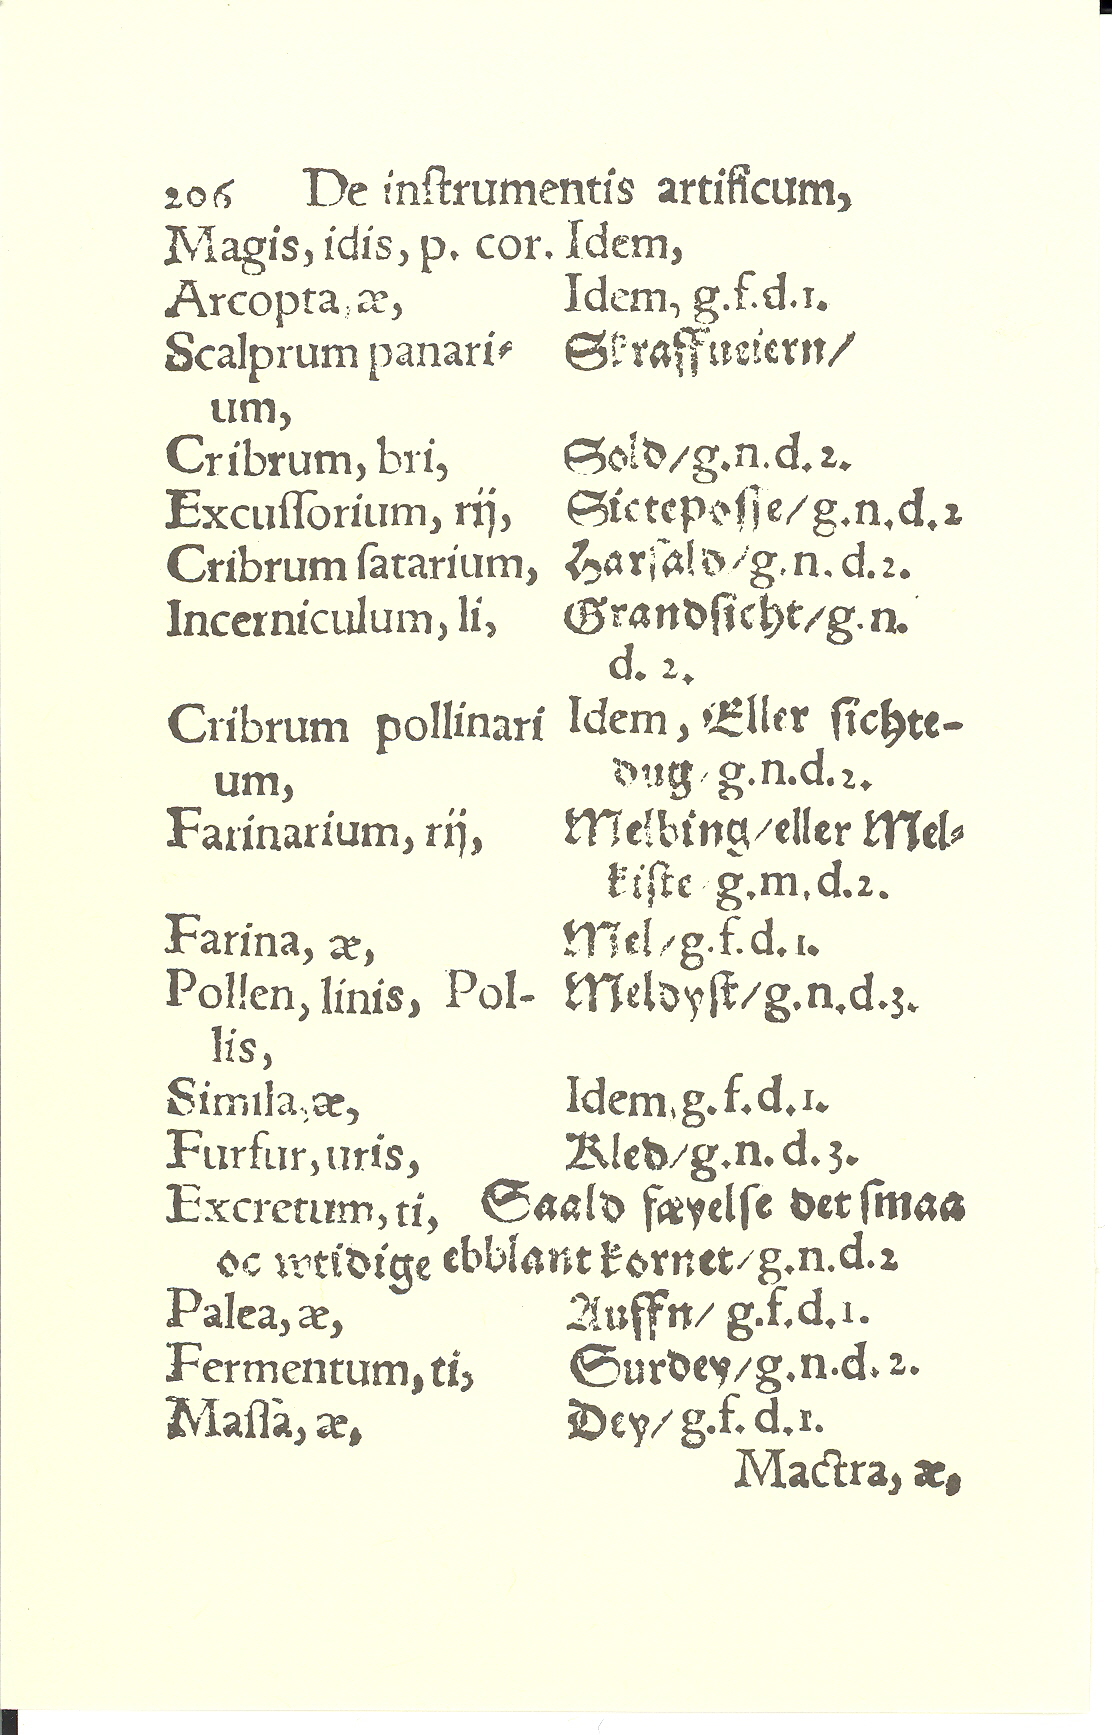 206 De inſtrumentis artificum,
Magis, idis, p. cor. Idem,
Arcopta, æ, Idem, g.f.d.1.
Scalprum panari- Skraffueiern/
um,
Cribrum, bri, Sold/g.n.d.2.
Excuſſorium, rij, Sicteposſe/g.n.d.2
Cribrum ſatarium, Harſald/g.n.d.2.
Incerniculum, li, Grandſicht/g.n.
d. 2.
Cribrum pollinari Idem, Eller ſichte-
um, dug/g.n.d.2.
Farinarium, rij, Melbing/eller Mel-
kiſte g.m.d.2.
Farina, æ, Mel/g.f.d.1.
Pollen, linis, Pol- Meldyſt/g.n.d.3.
lis,
Simila, æ, Idem, g.f.d.1.
Furfur, uris, Kled/g.n.d.3.
Excretum, ti, Saald fæyelſe det ſmaa
oc wtidige ebblant kornet/g.n.d.2
Palea, æ, Auffn/ g.f.d.1.
Fermentum, ti, Surdey/g.n.d.2.
Maſſa, æ, Dey/ g.f.d.1.
Mactra, æ,